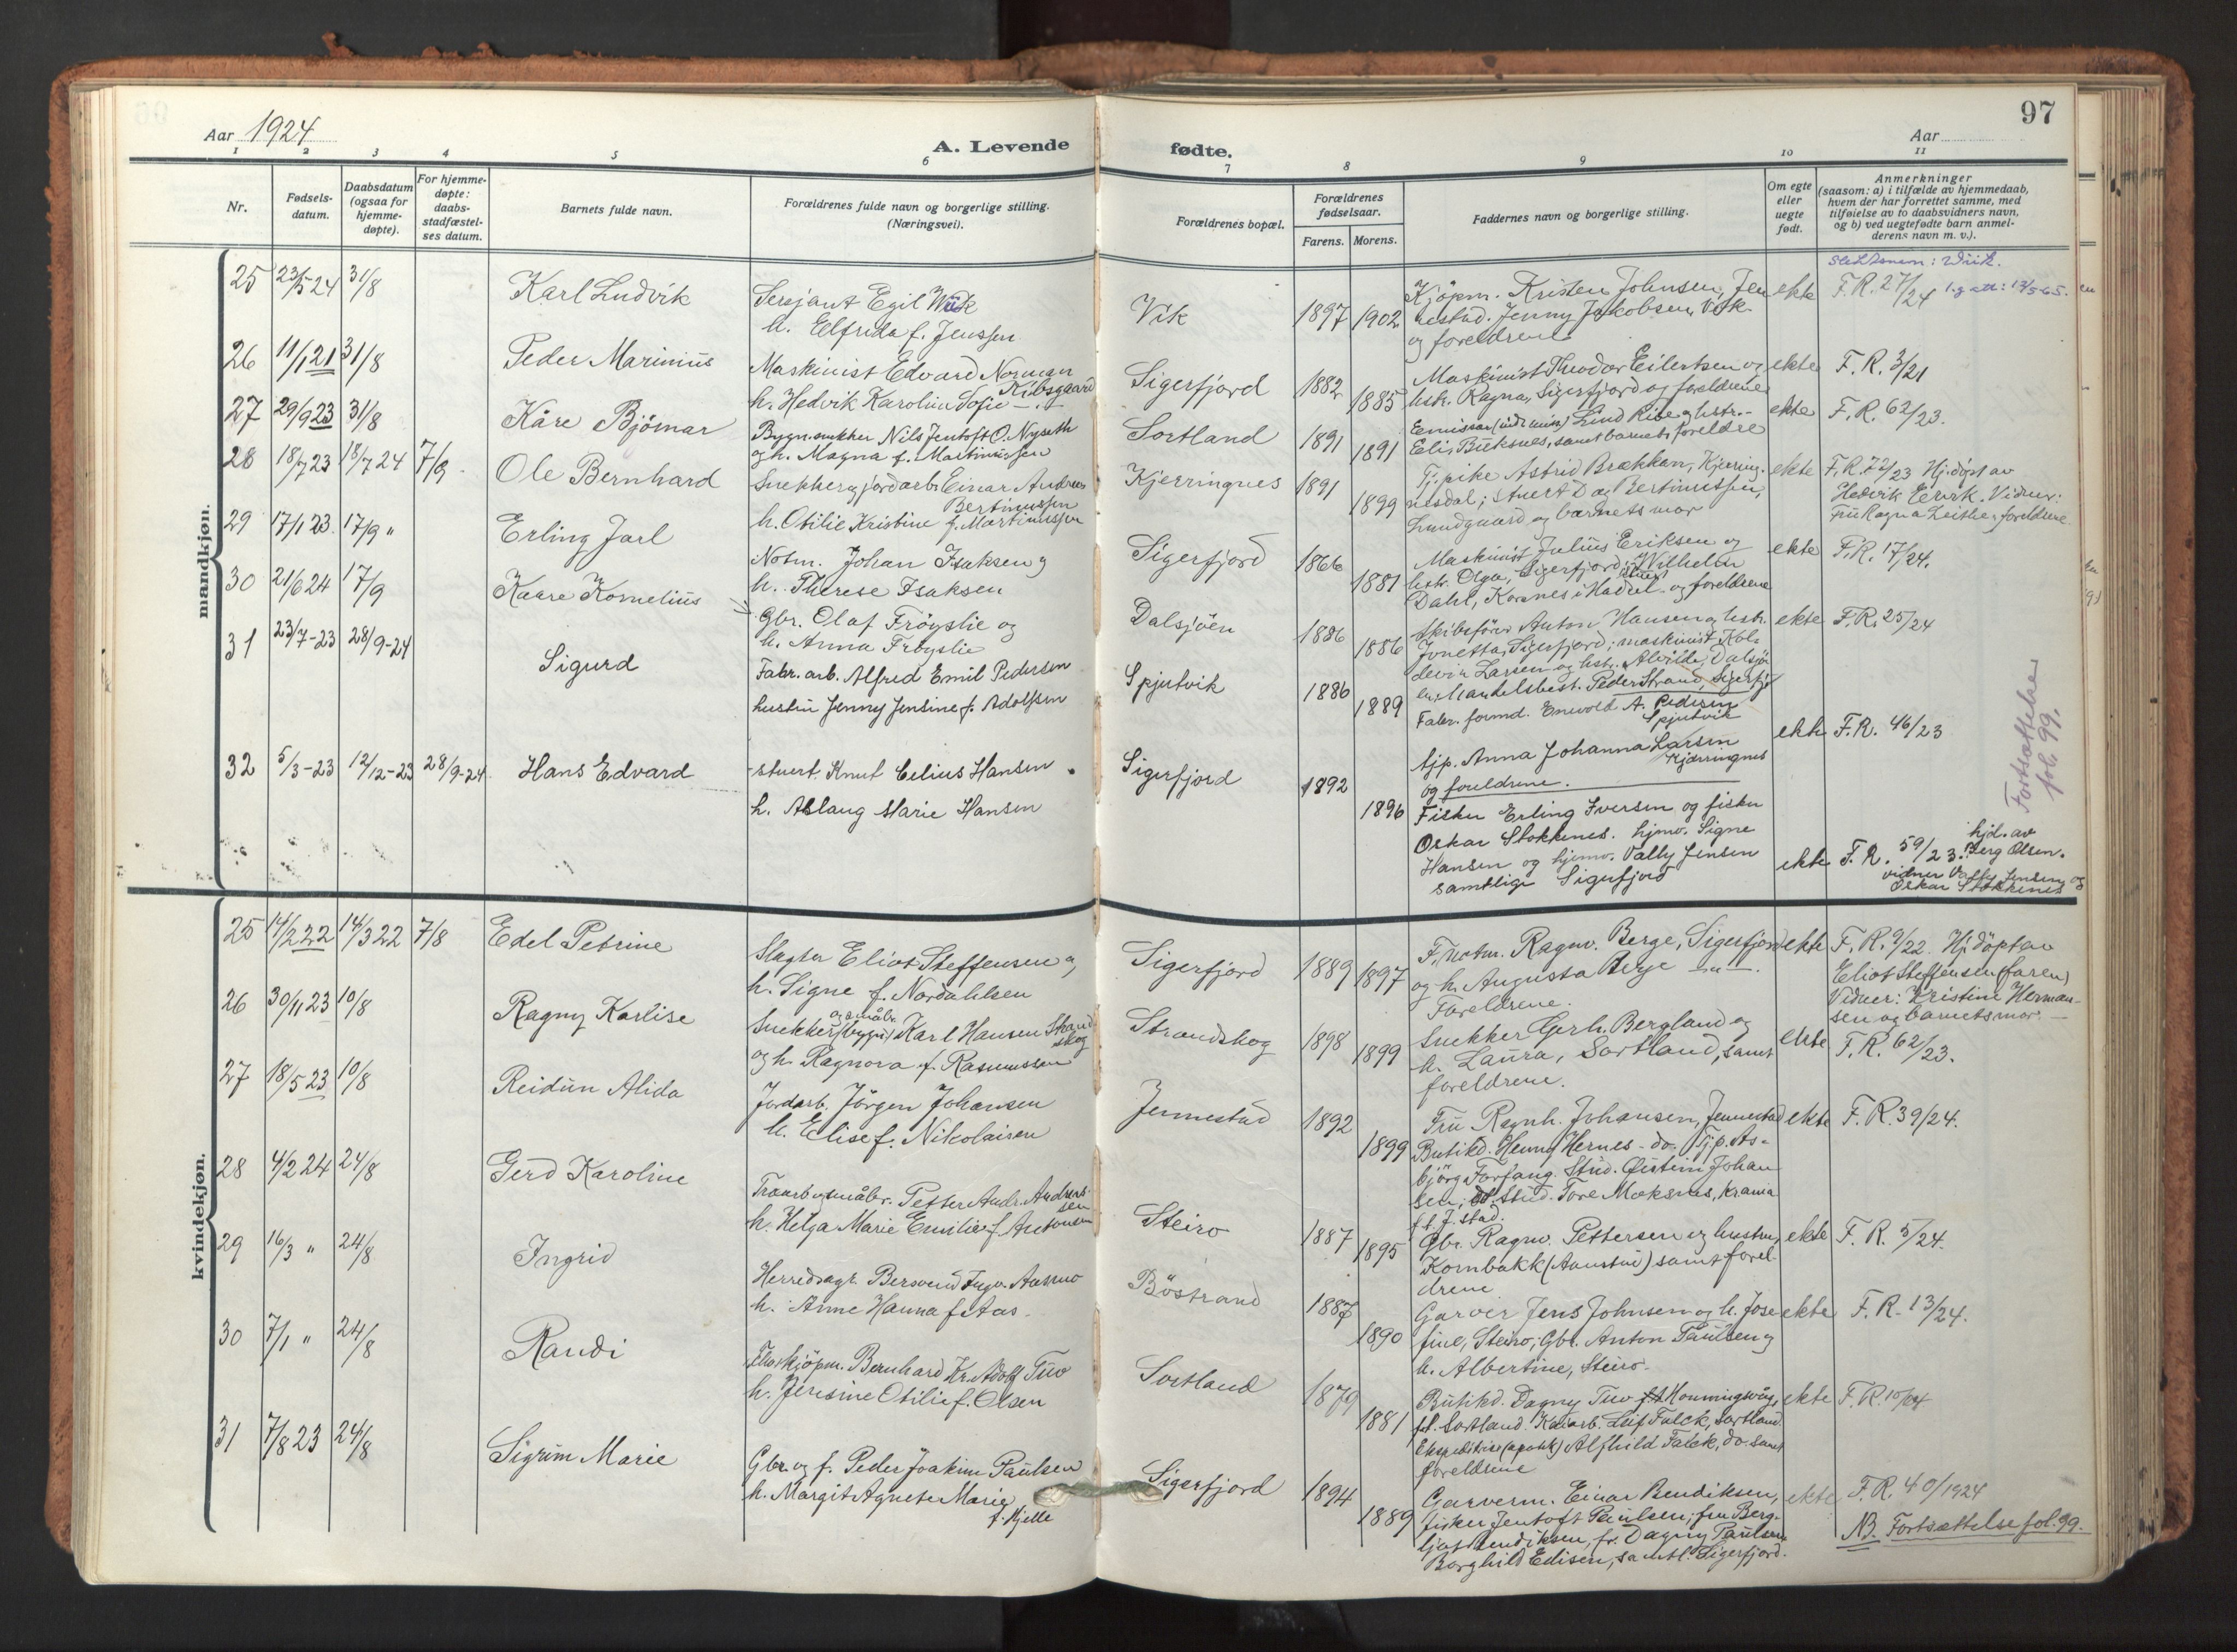 97
Aar 1924
A. Levende fødte.
Aar
1 2 3 4 5 6 7 8 9 10 11
Nr.
Fødsels-
datum.
Daabsdatum
(ogsaa for
hjemme-
døpte).
For hjemme-
døpte:
daabs-
stadfæstel-
ses datum.
Barnets fulde navn.
Forældrenes fulde navn og borgerlige stilling.
(Næringsvei).
Forældrenes bopæl.
Forældrenes
fødselsaar.
Farens. Morens.
Faddernes navn og borgerlige stilling.
Om egte
eller
uegte
født.
Anmerkninger
(saasom: a) i tilfælde av hjemmedaab,
hvem der har forrettet samme, med
tilføielse av to daabsvidners navn,
og b) ved uegtefødte barn anmel-
derens navn m. v.).
mandkjøn.
25 23/5 24 31/8 Karl Ludvik
Sersjant Egil Wiik
h. Elfrida f. Jenssen
Vik 1897 1902
Kjöpm. Kristen Johnsen, Jen
nestad. Jenny Jakobsen, Vik.
og foreldrene
ekte
Slektsnavn: Wiik.
F.R. 27/24
26 11/1 21 31/8 Peder Marinius
Maskinist Edvard Norman
Kibsgaard
h. Hedvik Karoline Sofie
Sigerfjord 1882 1885
Maskinist Theodor Eilertsen og
hstr. Ragna, Sigerfjord og foreldrene
ekte F.R. 3/21
27 29/9 23 31/8 Kåre Björnar
Bygn.snekker Nils Jentoft O. Nyseth
og h. Magna f. Martinussen
Sortland 1891 1891
Emissær (indremis) Lind Rise og hstr.
Eli, Buksnes, samt barnets foreldre
ekte F.R. 62/23.
28 18/7 23 18/7 24 7/9 Ole Bernhard
Snekker og jordarb. Einar Andreas
Bertinussen
h. Otilie Kristine f. Martinussen
Kjerringnes 1891 1899
Tj.pike Astrid Brækkan, Kjerring-
nesdal; stuert D ag Bertinussen,
Lundgaard og barnets mor
ekte F.R. 72/23 Hj.döpt av
Hedvik Eervik. Vidner:
Fru Ragna Leithe, foreldrene
29 17/1 23. 17/9 " Erling Jarl
Notm. Johan Isaksen og
h. Therese Isaksen
Sigerfjord 1866 1881
Maskinist Julius Eriksen og
hstr. Olga, Sigerfjord; Wilhelm
Dahl, Kornes i Hadsel og foreldrene
ekte F.R. 17/24.
30 21/6 24 17/9 Kaare Kornelius
Gbr. Olaf Fröyslie og
h. Anna Fröyslie
Dalsjöen 1886 1886
Skibsförer Anton Hansen og hstr.
Jonetta, Sigerfjord; maskinist Kol-
devin Larsen og hstr. Alvilde, Dalsjö
en. Handelsbest. Peder Strand, Sigerfj.
ekte F.R. 25/24
31 23/7-23 28/9-24 Sigurd
Fabr. arb. Alfred Emil Pedersen
hustru Jenny Jensine f. Adolfsen
Spjutvik 1886 1889
Fabr. formd. Enevold A. Pedersen
Spjutvik
tjp. Anna Johanna Larsen
Kjærringnes
og foreldrene.
ekte F.R. 46/23
Fortsættelse
fol. 99.
32 5/3-23 12/12-23 28/9-24 Hans Edvard
stuert Knut Celius Hansen
h. Aslaug Marie Hansen
Sigerfjord 1892 1896
Fisker Erling Iversen og fisker
Oskar Stokkenes. hjmv. Signe
Hansen og hjemv. Vally Jensen
samtlige Sigerfjord
ekte F.R. 59/23. hjd. av
Berg Olsen.
vidner Vally Jensen og
Oskar Stokkenes
kvindekjøn.
25 14/2 22 14/3 22 7/8 Edel Petrine
Slagter Eliot Steffensen og
h. Signe f. Nordahlsen
Sigerfjord 1889 1897
F. notm. Ragnv. Berge, Sigerfjord
og h. Augusta Berge
Foreldrene.
ekte F.R. 9/22. Hj.döpt av
Eliot Steffensen (faren)
Vidner: Kristine Herman-
sen og barnets mor.
26 30/11 23 10/8 Ragny Karlise
og småbr.
Snekker (bygn) Karl Hansen Strand
skog
og h. Ragnora f. Rasmussen
Strandskog 1898 1899
Snekker Gerh. Bergland og
h. Laura, Sortland, samt
foreldrene.
ekte F.R. 62/23.
27 18/5 23 10/8 Reidun Alida
Jordarb. Jörgen Johansen
h. Elise f. Nikolaisen
Jennestad 1892 1899
Fru Ragnh. Johansen, Jennestad
Butikd. Henny Hernes - do. Tj.p. As-
björg Forfang. Stud. Øistein Johan
sen, stud. Tore Moksnes, Krania
f.t. J.stad.
ekte F.R. 39/24.
28 4/2 24 24/8 Gerd Karoline
Traarb og småbr. Petter Andr. Andreas-
sen
h. Helga Marie Emilie f. Antonsen
Steiro 1887 1895
Gbr. Ragnv. Pettersen og hustru,
Kornbakk (Aanstad) samt forel-
drene
ekte F.R. 5/24.
29 16/3 " 24/8 Ingrid
Herredsagr. Bersvend Ingv. Aasmo
h. Anne Hanna f. Aas
Böstrand 1887 1890
Garver Jens Johnsen og h. Jose
fine, Steiro; Gbr. Anton Paulsen og
h. Albertine, Steiro.
ekte F.R. 13/24.
30 7/1 " 24/8 Randi
Bernhard Kr. Adolf Tuv
h. Jensine Otilie f. Olsen
Sortland 1879 1881
Butikd. Dagny Tuv Honningsvåg,
f.t. Sortland. Leif Falck, Sortland
Ekspeditrise (apotek) Alfhild Falck, do. samt
foreldrene
ekte F.R. 10/24
31 7/8 23 24/8 Sigrun Marie
Gbr. og f. Peder Joakim Paulsen
h. Margit Agnete Marie
f. Kjelle
Sigerfjord 1894 1889
Garverm. Einar Bendiksen,
fisker Jentoft Paulsen; fru Berg-
ljot Bendiksen, fr. Dagny Paulsen
Borghild Edisen, samtl. Sigerfjord.
ekte F.R. 40/1924
NB. Fortsættelse fol. 99.